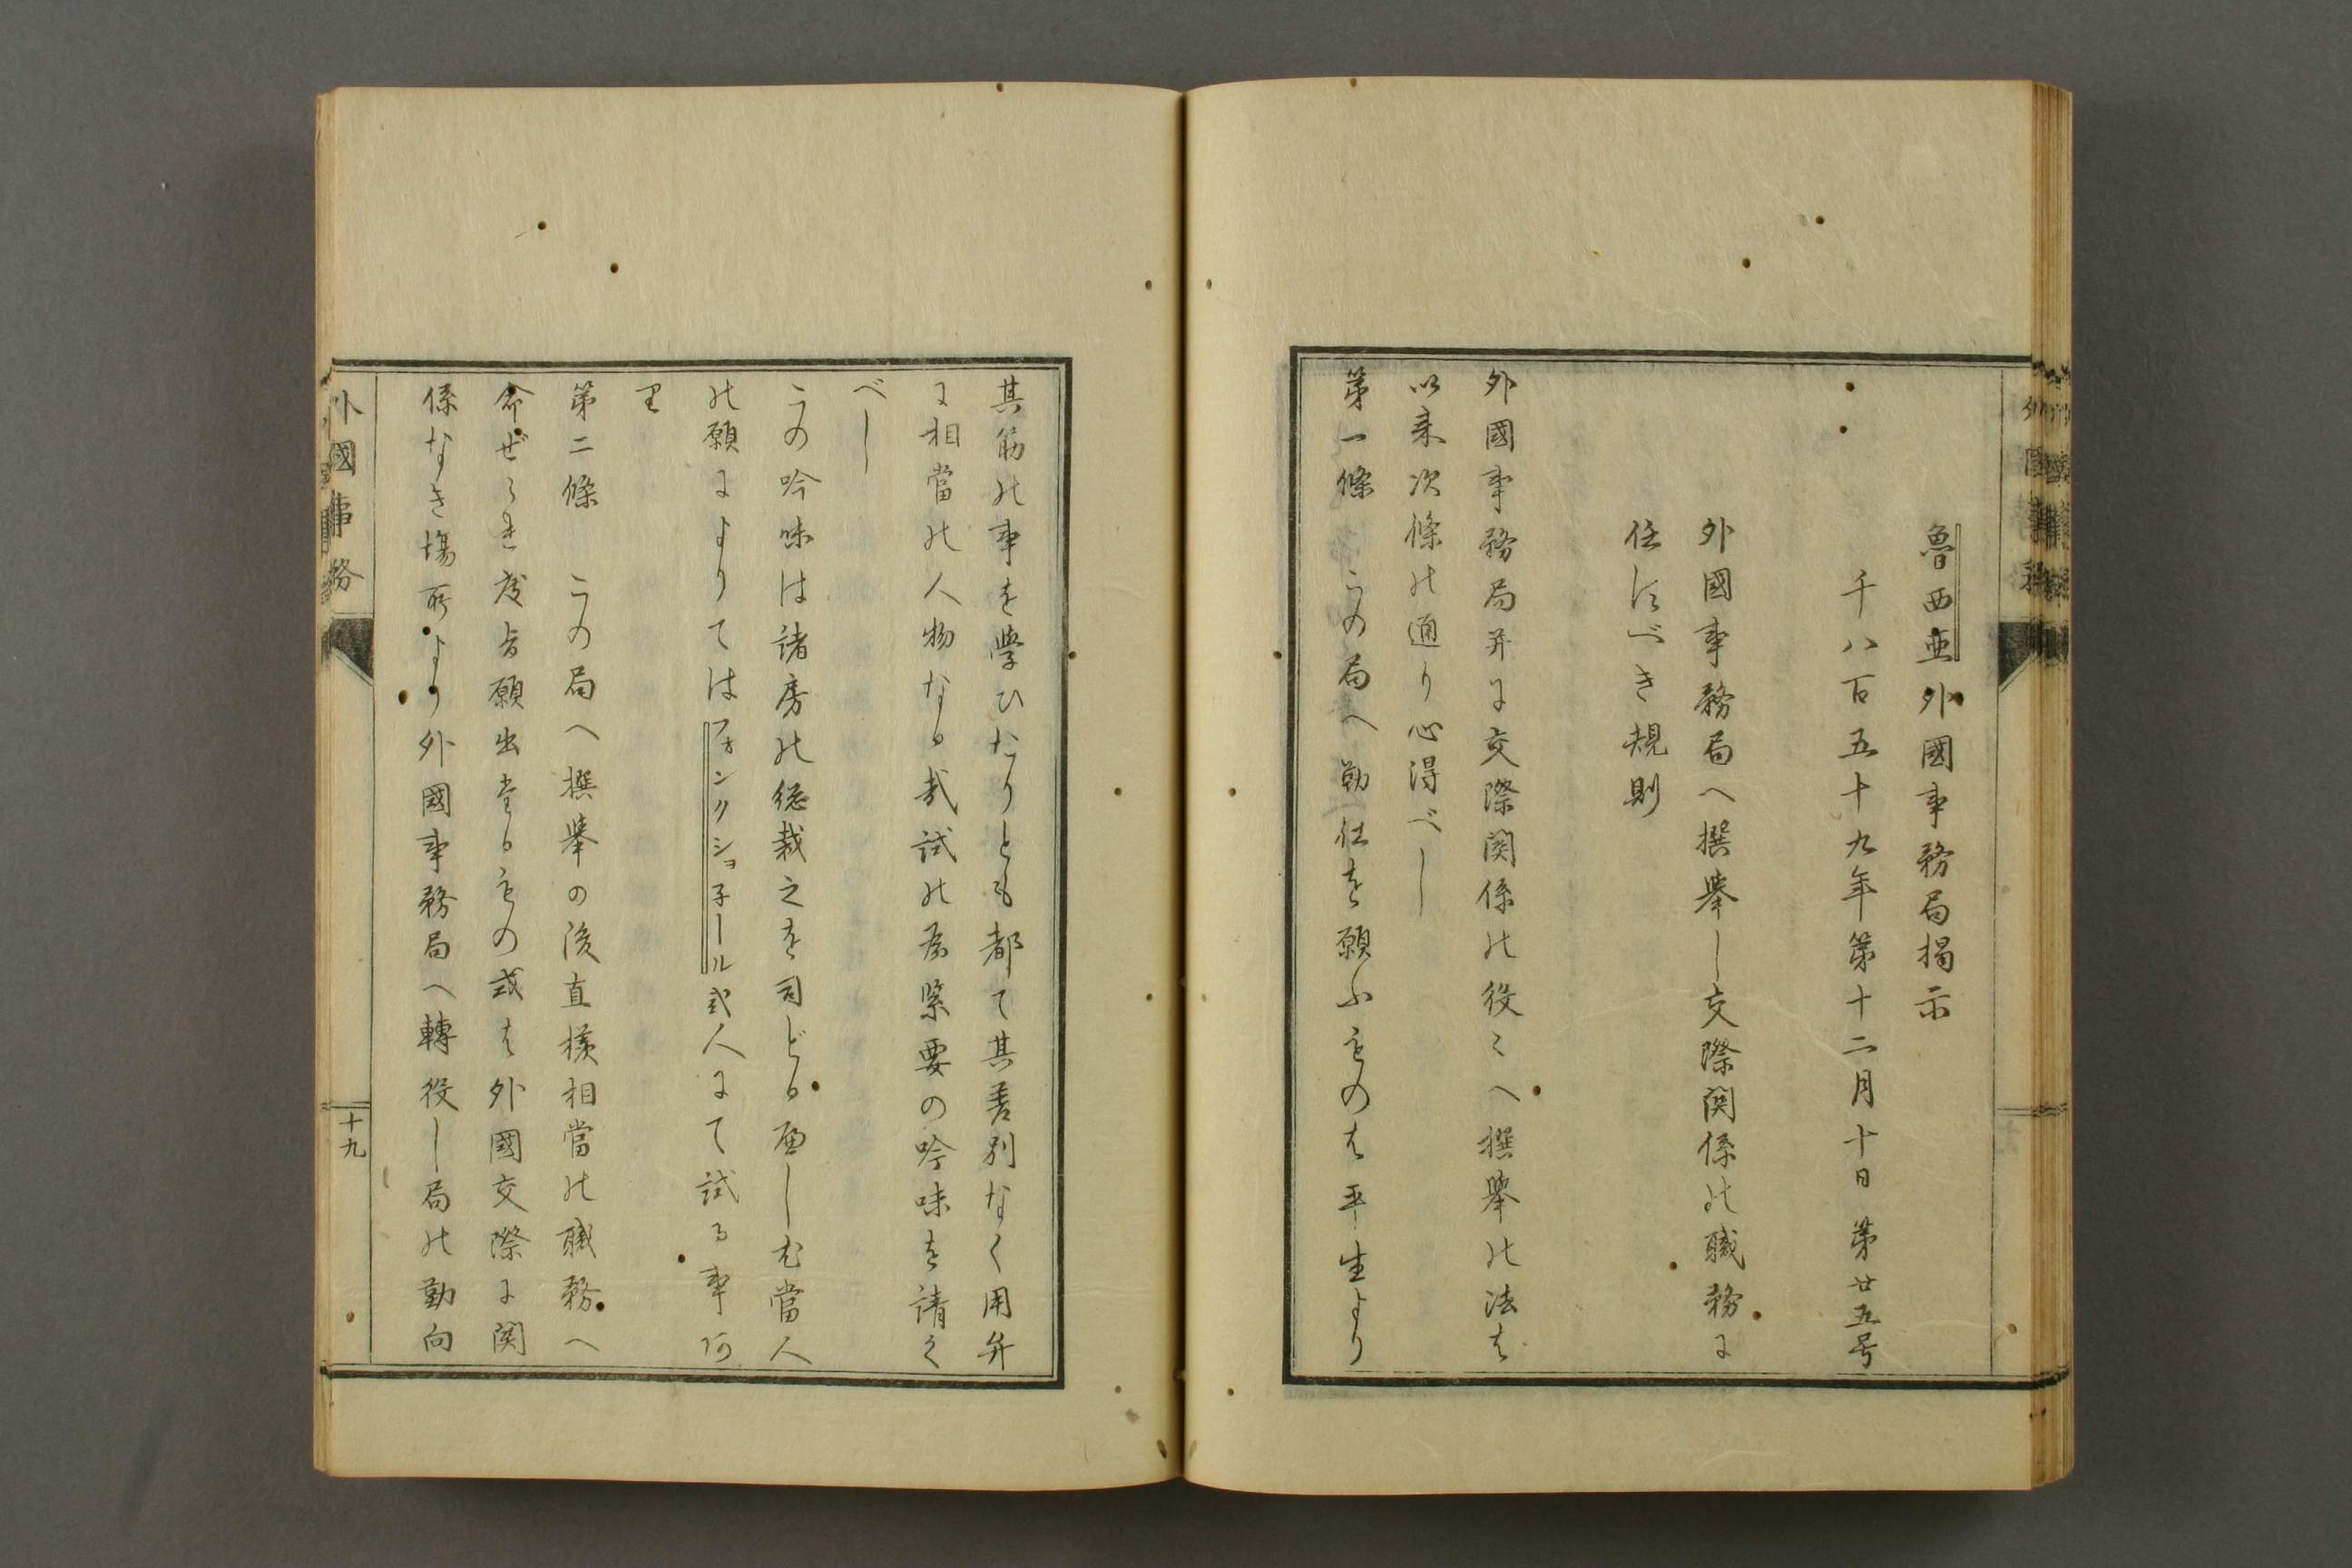 魯西亜外國事務局掲示
千八百五十九年第十二月十日第廿五号
外國事務局へ撰挙し交際関係の職務に
任ずべき規則
外國事務局并に交際関係の役〻へ撰挙の法は
以来次條の通り心得べし
第一條 この局へ勤仕を願ふものは平生より
其筋の事を學ひたりとも都て其差別なく用弁
に相當の人物なる哉試の為緊要の吟味を請く
べし
この吟味は諸房の総裁之を司どる但し尤當人
の願によりてはフォンクショ子ール弐人にて試る事阿
里
第二條 この局へ撰挙の後直様相當の職務へ
命ぜられ度旨願出たるもの或は外國交際に関
係なき場所より外國事務局へ轉役し局の勤向
外國事務
十九